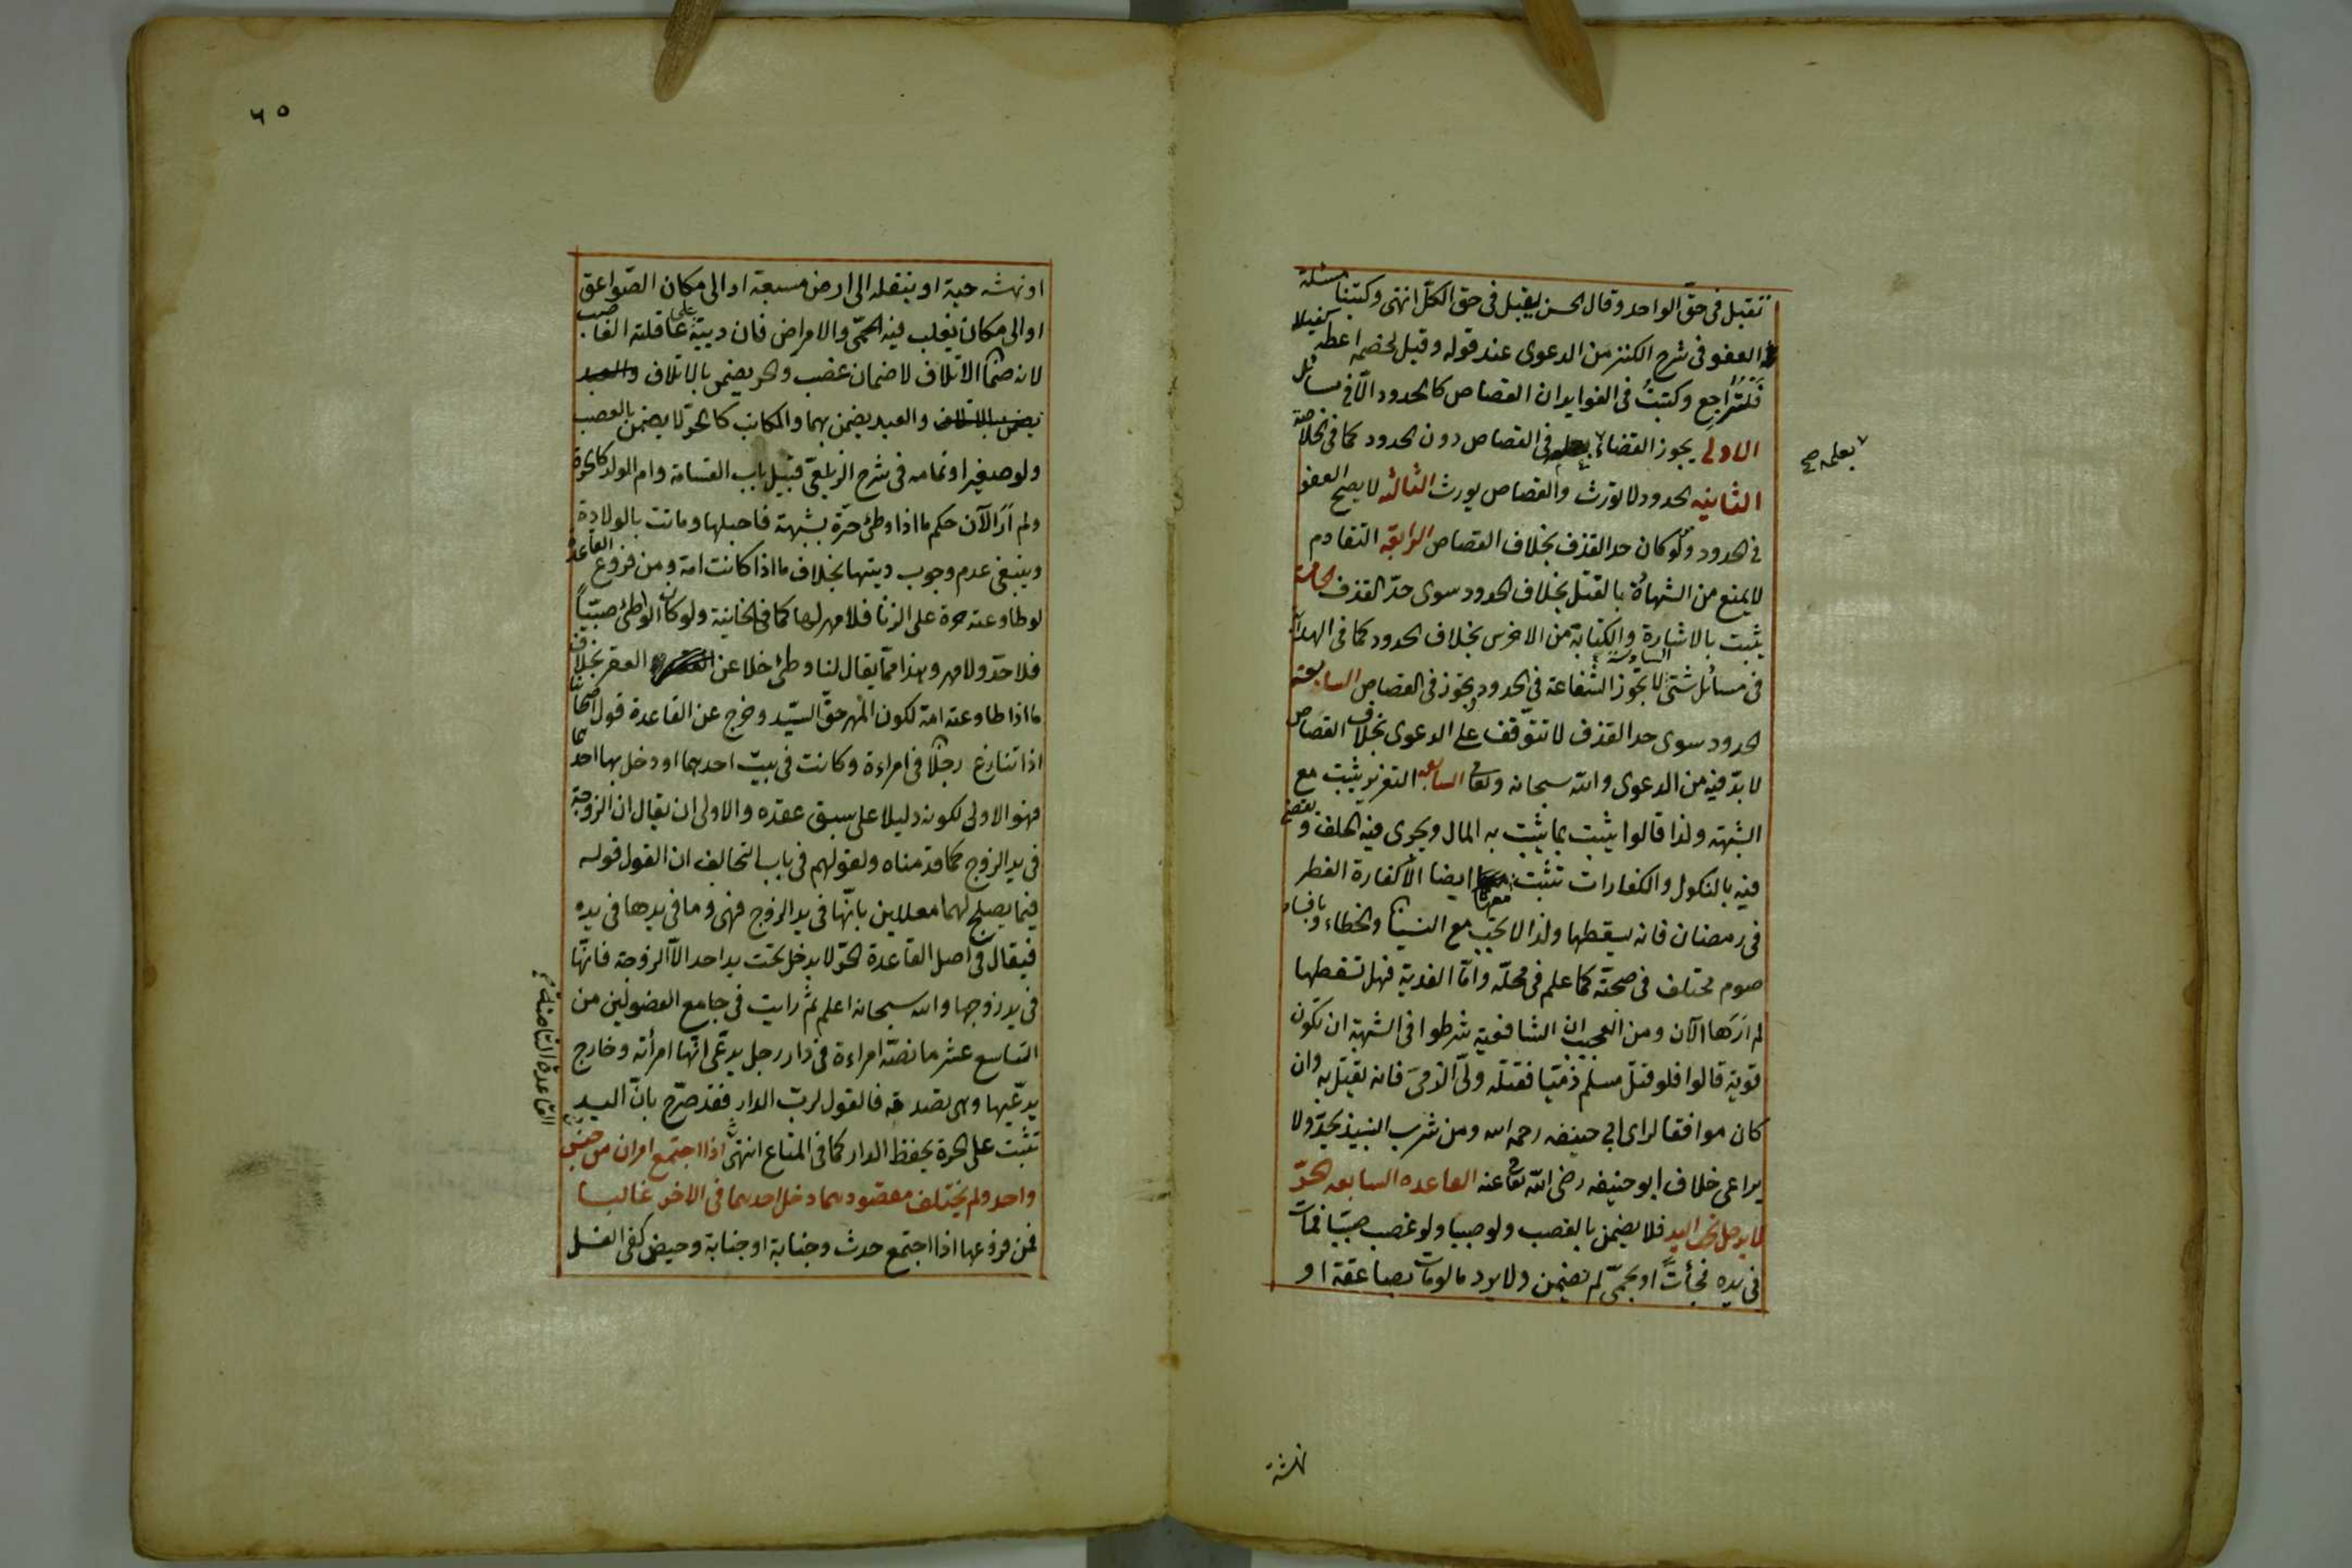 تقبل فى حقّ الواحد وقال الحسن يقبل فى حق الكلّ انتهى وكتبنا مسئلة
العفو فى شرح الكنز من الدعوى عند قوله وقيل لخصمه اعطه كفيلا
فَلتُرَاجع وكتبتُ فى الفوايد ان القصاص كالحدود الّا فى مسائل
الاولى يجوز القضاء بعلمه فى القصاص دون الحدود كما فى الخلاصة
بعلمه صح
الثانيه الحدود لا تورث والقصاص يورث الثالثه لا يصح العفو
فى الحدود ولو كان حد القذف بخلاف القصاص الرابعه التقادم
لا يمنع من الشهادة بالقتل بخلاف الحدود سوى حدّ القذف الخامسة
يثبت بالاشارة والكتابة من الاخرس بخلاف الحدود كما فى الهداية
فى مسائل شتى السادسة لا تجوز الشفاعة فى الحدود وتجوز فى القصاص السابعة
الحدود سوى حد القذف لا تتوقف على الدعوى بخلاف القصاص
لا بدّ فيه من الدعوى والله سبحانه وتعا السابعه التعزير يثبت مع
الشبهة ولذا قالوا يثبت بما يثبت به المال ويجرى فيه الحلف ويقضى
فيه بالنكول والكفارات تثبت معها ايضا الّا كفارة الفطر
فى رمضان فانه يسقطها ولذا لا تجب مع النسيان والخطاء وبافساد
صوم مختلف فى صحته كما علم فى محلّه وامّا الفدية فهل تسقطها
لم اَرَها الآن ومن العجيب ان الشافعية شرطوا فى الشبهة ان تكون
قوية قالوا فلو قتل مسلم ذمّيا فقتله ولّى الذمّى فانه يقتل به وان
كان موافقا لراى ابي حنيفه رحمه الله ومن شرب النبيذ يحدّ ولا
يراعى خلاف ابو حنيفه رضى الله تعا عنه القاعده السابعه الحرّ
لا يدخل تحت اليد فلا يضمن بالغصب ولو صبيا ولو غصب صبيّا فمات
فى يده فجأتً او بحمّى لم يضمن ولا يرد ما لو مات بصاعقة او
نهشة
٦٥
او نهشه حية او ينقله الى ارض مسبعة او الى مكان الصّواعق
او الى مكان يغلب فيه الحمّى والامراض فان ديته على عاقلة الغاصب
لانه ضمان الاتلاف لا ضمان غصب والحر يضمن بالاتلاف والعبد
يضمن بالاتلاف والعبد يضمن بهما والمكاتب كالحرّ لا يضمن بالغصب
ولو صغيرا وتمامه فى شرح الزيلعىّ قبيل باب القسامة وام الولد كالحرة
ولم اَرَ الآن حكم ما اذا وطئ حرّة بشبهة فاحبلها وماتت بالولادة
وينبغى عدم وجوب ديتها بخلاف ما اذا كانت امة ومن فروع القاعدة
لو طاوعته حرة على الزنا فلا مهر لها كما فى الخانية ولو كان الواطئ صبيّاً
فلا حدّ ولا مهر وهذا ممّا يقال لنا وطئ خلا عن العقر بخلاف
ما اذا طاوعته امة لكون المهر حقّ السيّد وخرج عن القاعدة قول اصحابنا
اذا تنازع رجلان فى امراءة وكانت فى بيت احدهما او دخل بها احدهما
فهو الاولى لكونه دليلا على سبق عقده والاولى ان يقال ان الزوجة
فى يد الزوج كما قدمناه ولقولهم فى باب التحالف ان القول قوله
فيما يصلح لهما معللين بانّها فى يد الزوج فهى وما فى يدها فى يده
فيقال فى اصل القاعدة الحرّ لا يدخل تحت يد احد الّا الزوجة فانها
فى يد زوجها والله سبحانه اعلم ثم رايت فى جامع الفصولين من
التاسع عشر ما نصّه امراءة فى دار رجل يدّعى انّها امرأته وخارج
يدّعيها وهى تصدقه فالقول لربّ الدار فقد صرّح بانّ اليد
تثبت على الحرة بحفظ الدار كما فى المتاع انتهى اذا اجتمع امران من جنس
واحد ولم يختلف مقصودهما دخل احدهما فى الاخر غالبا
فمن فروعها اذا اجتمع حدث وجنابة او جنابة وحيض كفى الغسل
القاعدة الثامنة